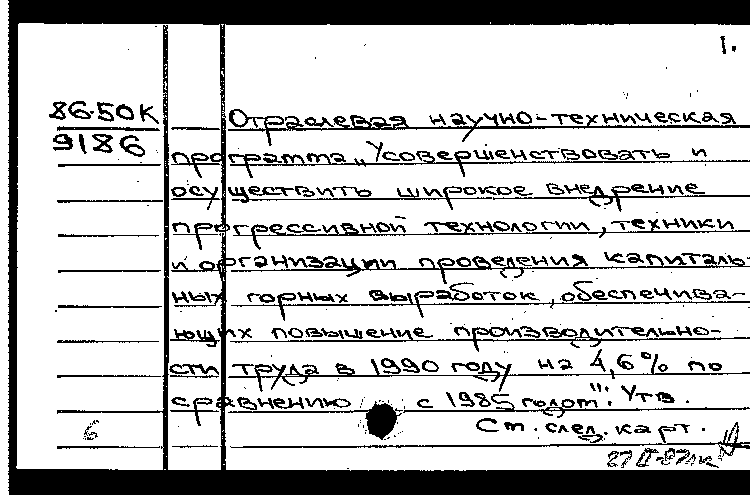 1.
86-50К
9186
Отраслевая научно-техническая
программа „Усовершенствовать и
осуществить широкое внедрение
прогрессивной технологии, техники
и организации проведения капиталь-
ных горных выработок, обеспечива-
ющих повышение производительно-
сти труда в 1990 году на 4,6% по
сравнению с 1985 годом". Утв.
6
См. след. карт.